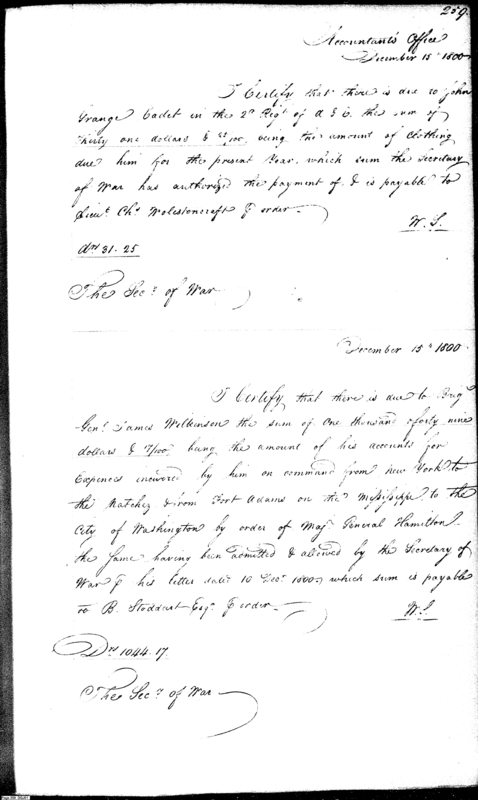 259.
Accountants Office
December 15th 1800
I Certify that there is due to John
Grange Cadet in the 2d Regt of A & E the sum of
Thirty one dollars & 25/100 being the amount of Clothing
due him for the present Year, which sum the Secretary
of War has authorized the payment of & is payable to
Lieut. Chs. Wolestoncraft P order.
W. S.
Drs 31.25
The Secy of War
December 15th 1800
I Certify that there is due to Brigr
Genl. James Wilkinson the sum of One thousand & forty nine
dollars & 17/100 being the amount of his accounts for
Expences incurred by him on command from New York to
the Natchez & from Fort Adams on the Mississippi to the
City of Washington by order of Majr General Hamilton
the same having been admitted & allowed by the Secretary of
War P his letter date 10 Decr 1800, which sum is payable
to B. Stoddart Esqr P order.
W. S.
Drs 1044.17.
The Secy of War